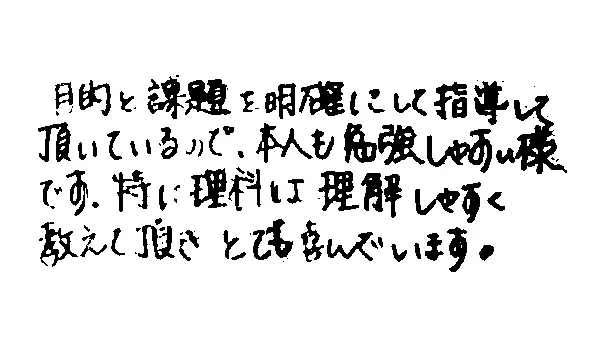 目的と課題を明確にして指導して
頂いているので、本人も勉強しやすい様
です。特に理科は理解しやすく
教えて頂きとても喜んでいます。